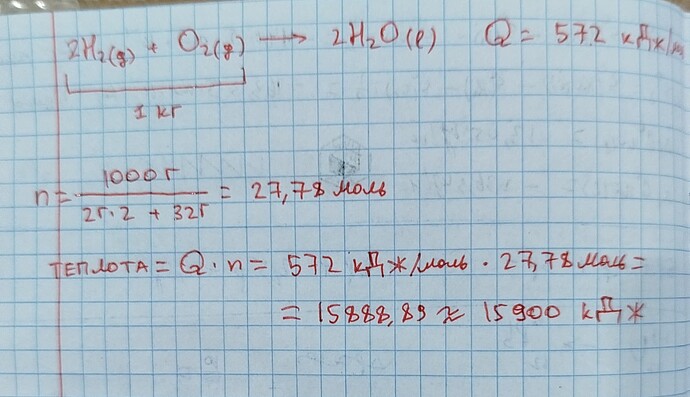 2H₂(g) + O₂(g) → 2H₂O(l) Q = 572 кДж/
1 кг
n = 1000г / 2г·2 + 32г = 27,78 моль
ТЕПЛОТА = Q · n = 572 кДж/моль · 27,78 моль =
= 15888,89 ≈ 15900 кДж